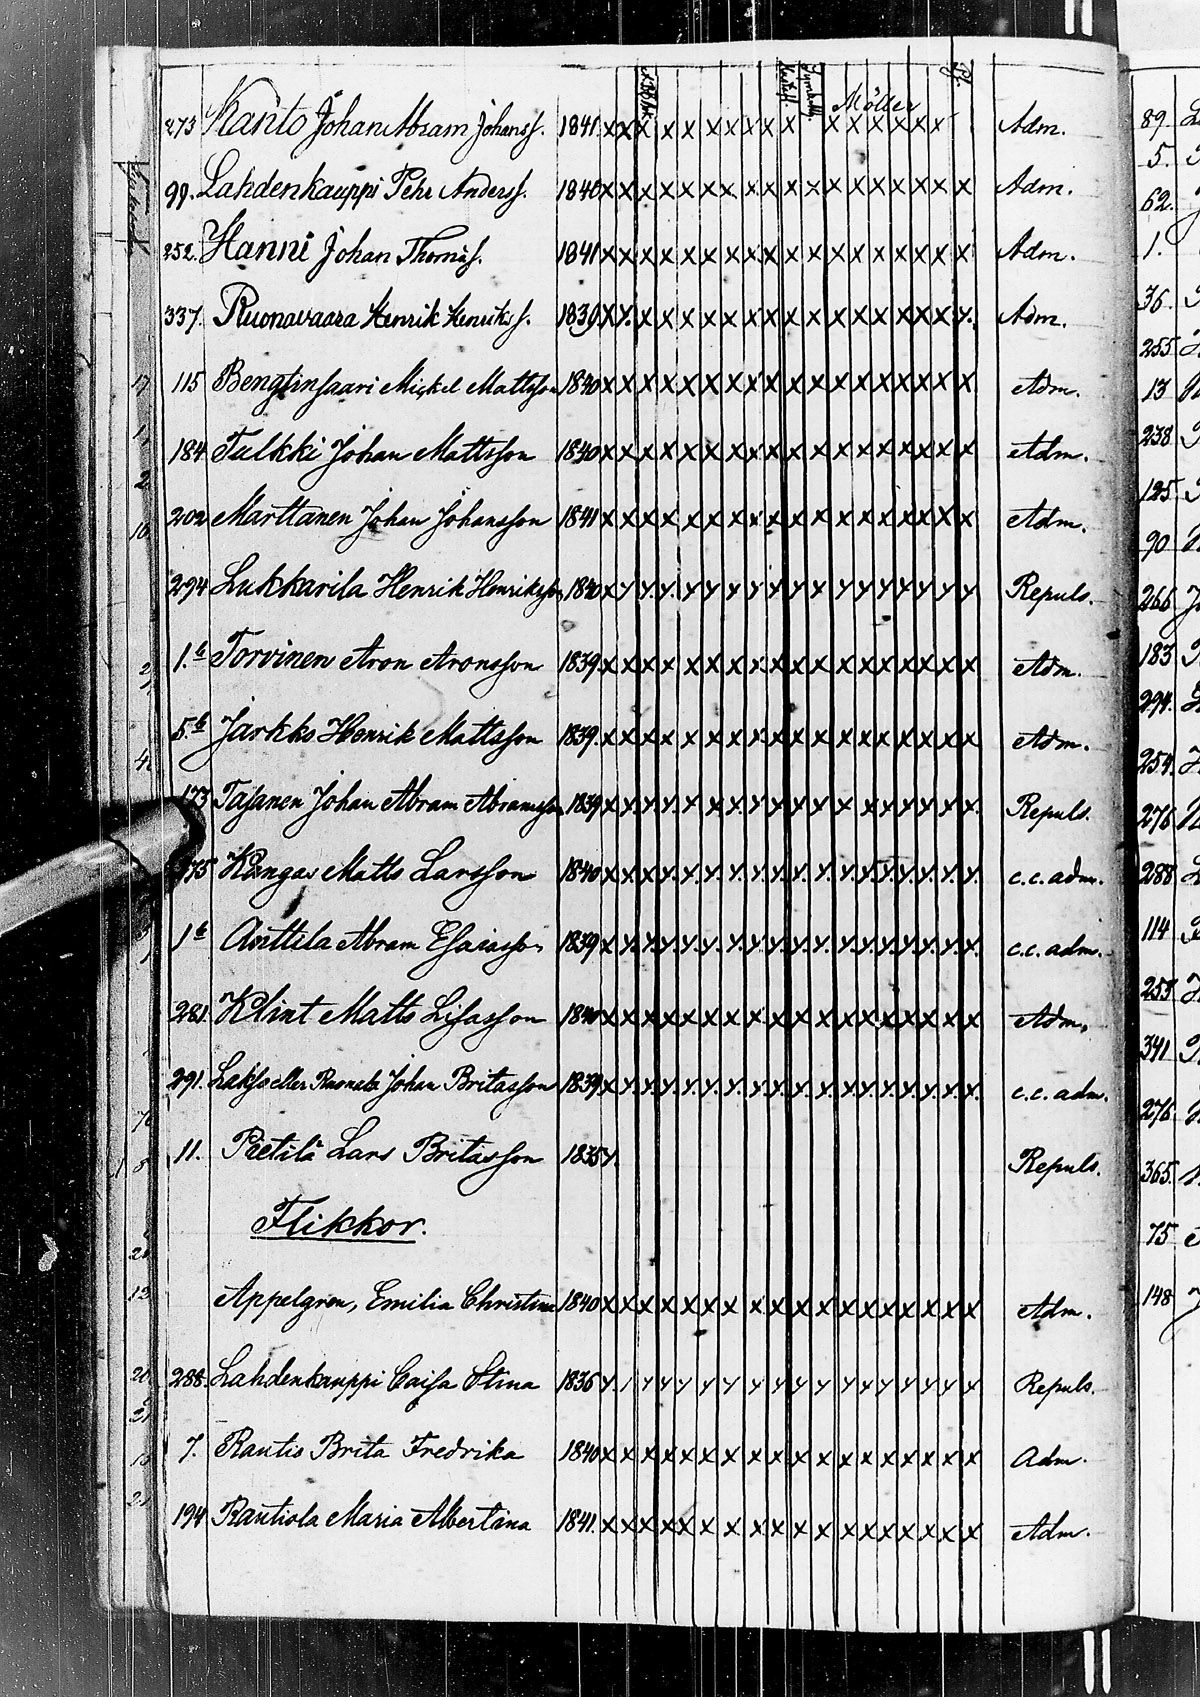 Möller
273 Kanto Johan Abram Johanss. 1841 x x x x x x x x x x x x x x x x x Adm.
99. Lahdenkauppi Pehr Anderss. 1840 x x x x x x x x x x x x x x x x x x Adm.
252. Hanni Johan Thomss. 1841 x x x x x x x x x x x x x x x x x x Adm.
337. Ruonavaara Henrik Henrikss. 1839 x x x x x x x x x x x x x x x x x x Adm.
115 Bengtinsaari Mickel Mattsson 1840 x x x x x x x x x x x x x x x x x x Adm.
184 Tulkki Johan Mattsson 1840 x x x x x x x x x x x x x x x x x x Adm.
202 Marttanen Johan Johansson 1841 x x x x x x x x x x x x x x x x x x Adm.
294 Lukkarila Henrik Henriksson 1840 x y y y y y y y y y x y y y y y y y Repuls.
1.b Torvinen Aron Aronsson 1839 x x x x x x x x x x x x x x x x x x Adm.
5.b Jarkko Henrik Mattsson 1839. x x x x x x x x x x x x x x x x x x Adm.
173 Tajanen Johan Abram Abramsson 1839 x x y y x x x y y y y x x y y y y y Repuls.
175 Kangas Matts Larsson 1840 x x x y y y y y y y y y y y y y y y c.c. adm.
1b Anttila Abram Esaiasson 1839 x y y y y y y y y y y y y y y y y y c.c. adm.
281 Klint Matts Lisasson 1840 x x x x x x x x x x x x x x x x x x Adm.
291. Lakso eller Ruonala Johan Britasson 1839 x y y y y y y y y y y y y y y y y y c.c. adm.
11. Pietilä Lars Britasson 1835 y. Repuls.
Flikkor.
Appelgren, Emilia Christina 1840 x x x x x x x x x x x x x x x x x x Adm.
288. Lahdenkauppi Caisa Stina 1836 y 1 y y y y y y y y y y y y y y y y Repuls.
7. Rautio Brita Fredrika 1840 x x x x x x x x x x x x x x x x x x Adm.
194 Rautiola Maria Albertina 1841. x x x x x x x x x x x x x x x x x x Adm.
89.
5.
62.
1.
36.
255
13
238
125
90
266
183
294.
254.
276
288
114
253
341
276
365.
75
148